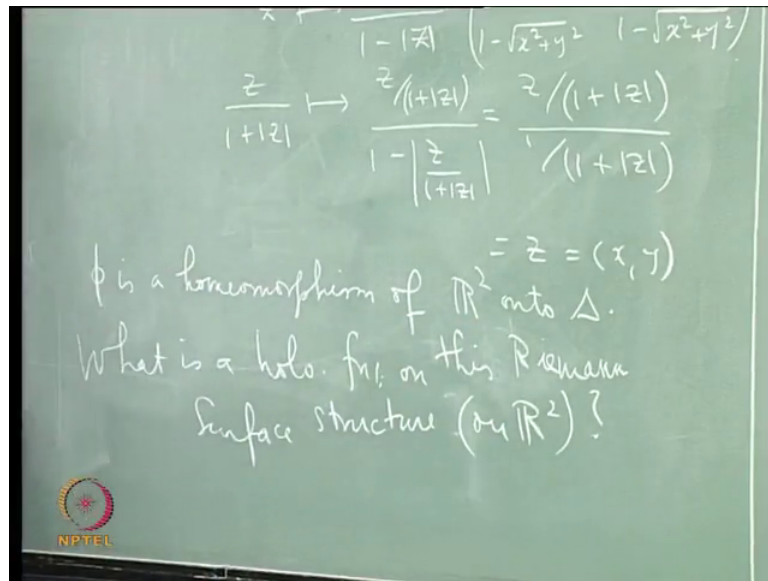 z ⟼ ――― / 1 - |z| ( ――― / 1-√x²+y² ――― / 1-√x²+y² )
z / 1+|z| ⟼ z/(1+|z|) / 1 - |z / 1+|z|| = z/(1+|z|) / 1/(1+|z|)
= z = (x, y)
ϕ is a homeomorphism of ℝ² onto Δ.
What is a holo. fn. on this Riemann
Surface structure (on ℝ²)?
NPTEL